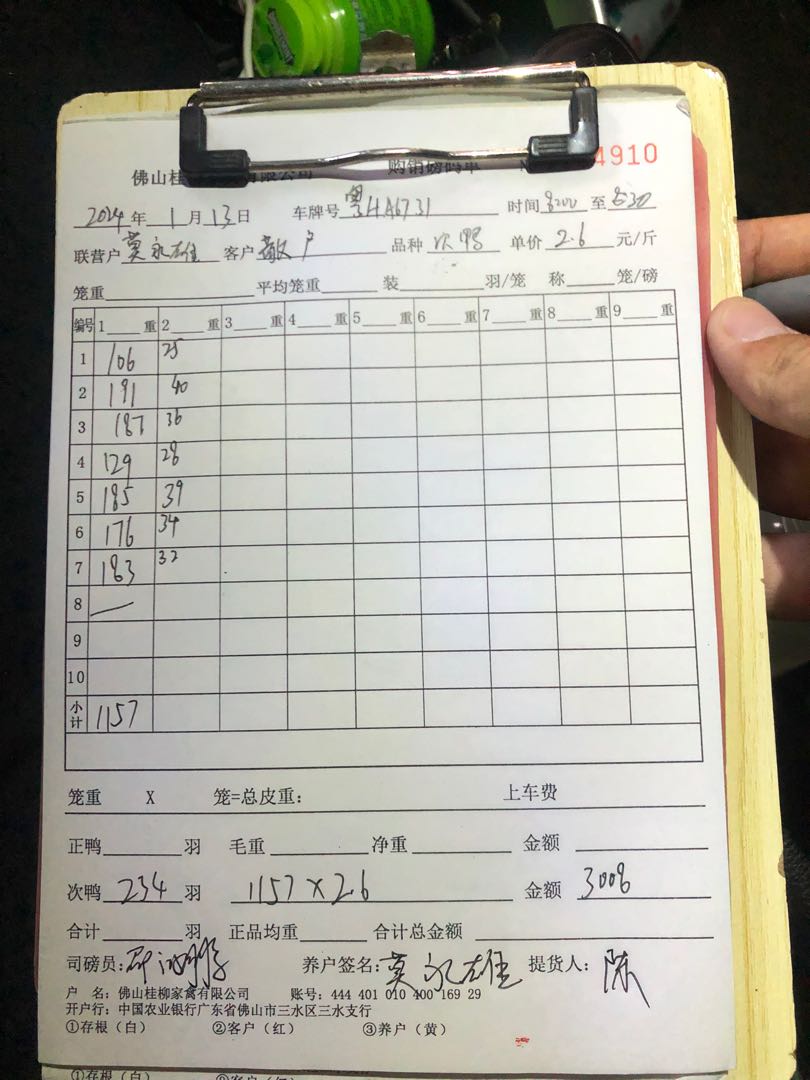 佛山桂 有限公司 购销磅码单 4910
2024年 1月13日 车牌号 粤HA6731 时间 8:00 至 8:30
联营户 莫永雄 客户 散户 品种 次鸭 单价 2.6 元/斤
笼重 平均笼重 装 羽/笼 称 笼/磅
编号 1 重 2 重 3 重 4 重 5 重 6 重 7 重 8 重 9 重
1 106 25
2 191 40
3 187 36
4 129 28
5 185 39
6 176 34
7 183 32
8 —
9
10
小计 1157
笼重 X 笼=总皮重: 上车费
正鸭 羽 毛重 净重 金额
次鸭 234 羽 1157×2.6 金额 3008
合计 羽 正品均重 合计总金额
司磅员: 养户签名: 莫永雄 提货人: 陈
户 名: 佛山桂柳家禽有限公司 账号: 444 401 010 400 169 29
开户行: 中国农业银行广东省佛山市三水区三水支行
①存根（白） ②客户（红） ③养户（黄）
①存根（白） ②客户（红）